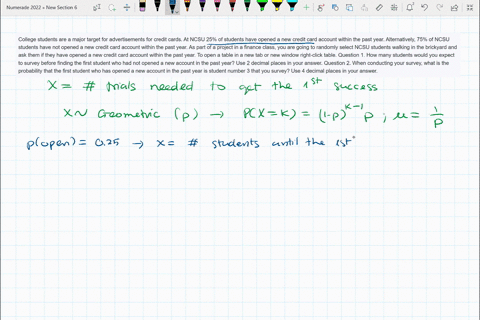 Numerade 2022 > New Section 6
College students are a major target for advertisements for credit cards. At NCSU 25% of students have opened a new credit card account within the past year. Alternatively, 75% of NCSU
students have not opened a new credit card account within the past year. As part of a project in a finance class, you are going to randomly select NCSU students walking in the brickyard and
ask them if they have opened a new credit card account within the past year. To open a table in a new tab or new window right-click table. Question 1. How many students would you expect
to survey before finding the first student who had not opened a new account in the past year? Use 2 decimal places in your answer. Question 2. When conducting your survey, what is the
probability that the first student who has opened a new account in the past year is student number 3 that you survey? Use 4 decimal places in your answer.
X = # trials needed to get the 1st success
X ~ Geometric (p) → P(X = K) = (1-p)^{K-1} p ; μ = 1/p
p(open) = 0.25 → X = # students until the 1st